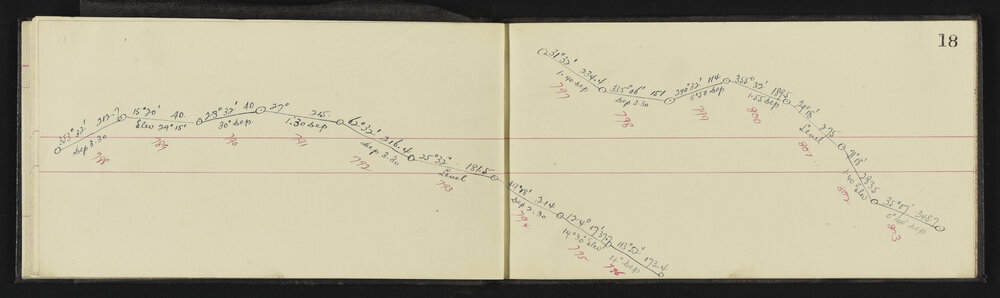 18
353°32' 217.
Dep 3.30
788
15°20' 40.
Elev 29°15'
789
29°32' 40
30° Dep
790
27° 245.
1.30 Dep
791
62°32' 216.4
Dep 3.30
792
25°32' 181.5
Level
793
49°18' 214
Dep 2.30
794
124°
14°30' Elev
795
113°52' 173.4
11° Dep
796
31°32' 234.4
1.40 Dep
797
335°06' 151
Dep 3.30
798
290°32' 114
5°50 Dep
799
355°32' 189.5
1.55 Dep
800
29°18' 275
Level
801
71°18' 283.5
1.40 Elev
802
35°07' 348.7
0°40' Dep.
803